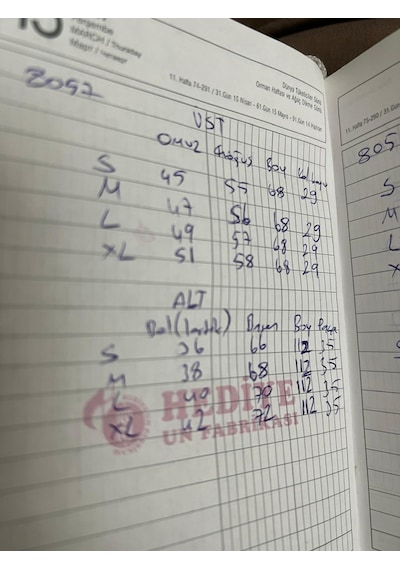 15
Perşembe
MARCH / Thursday
Март / Четверг
Dünya Tüketiciler Günü
Orman Haftası ve Ağaç Dikme Günü
11. Hafta 74-291 / 31 Gün 15 Nisan - 61 Gün 15 Mayıs - 91. Gün 14 Haziran
8057
ÜST
OMUZ Göğüs Boy Kol boyu
S 45 55 68 29
M 47 56 68 29
L 49 57 68 29
XL 51 58 68 29
ALT
Bel (lastik) Basen Boy Paça
S 36 66 112 35
M 38 68 112 35
L 40 70 112 35
XL 42 72 112 35
HEDİYE
UN FABRİKASI
805
S
M
L
XL